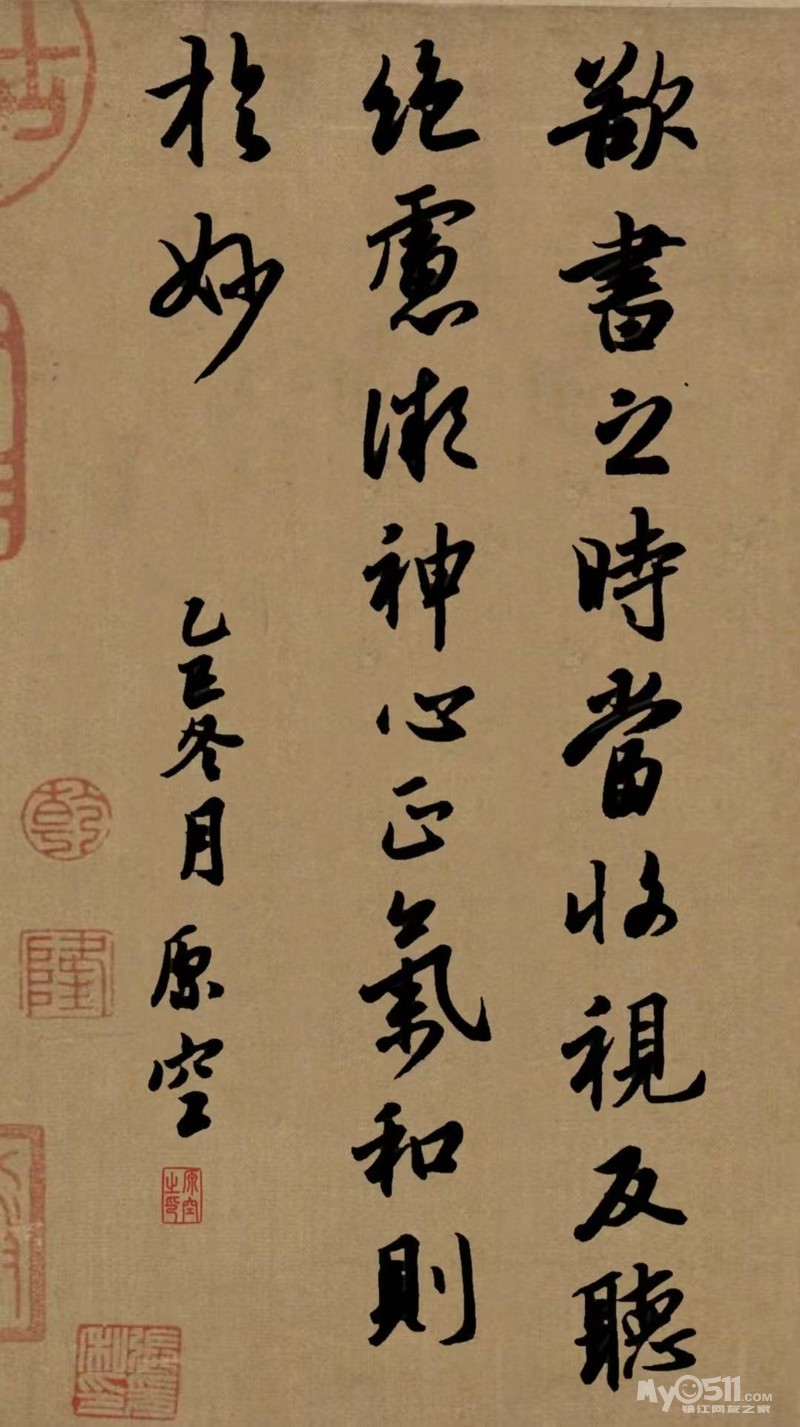 欲書之時當收視反聽
絕慮凝神心正氣和則
於妙
乙巳冬月 原空
原空之印
乾
隆
My0511.com
镇江网友之家